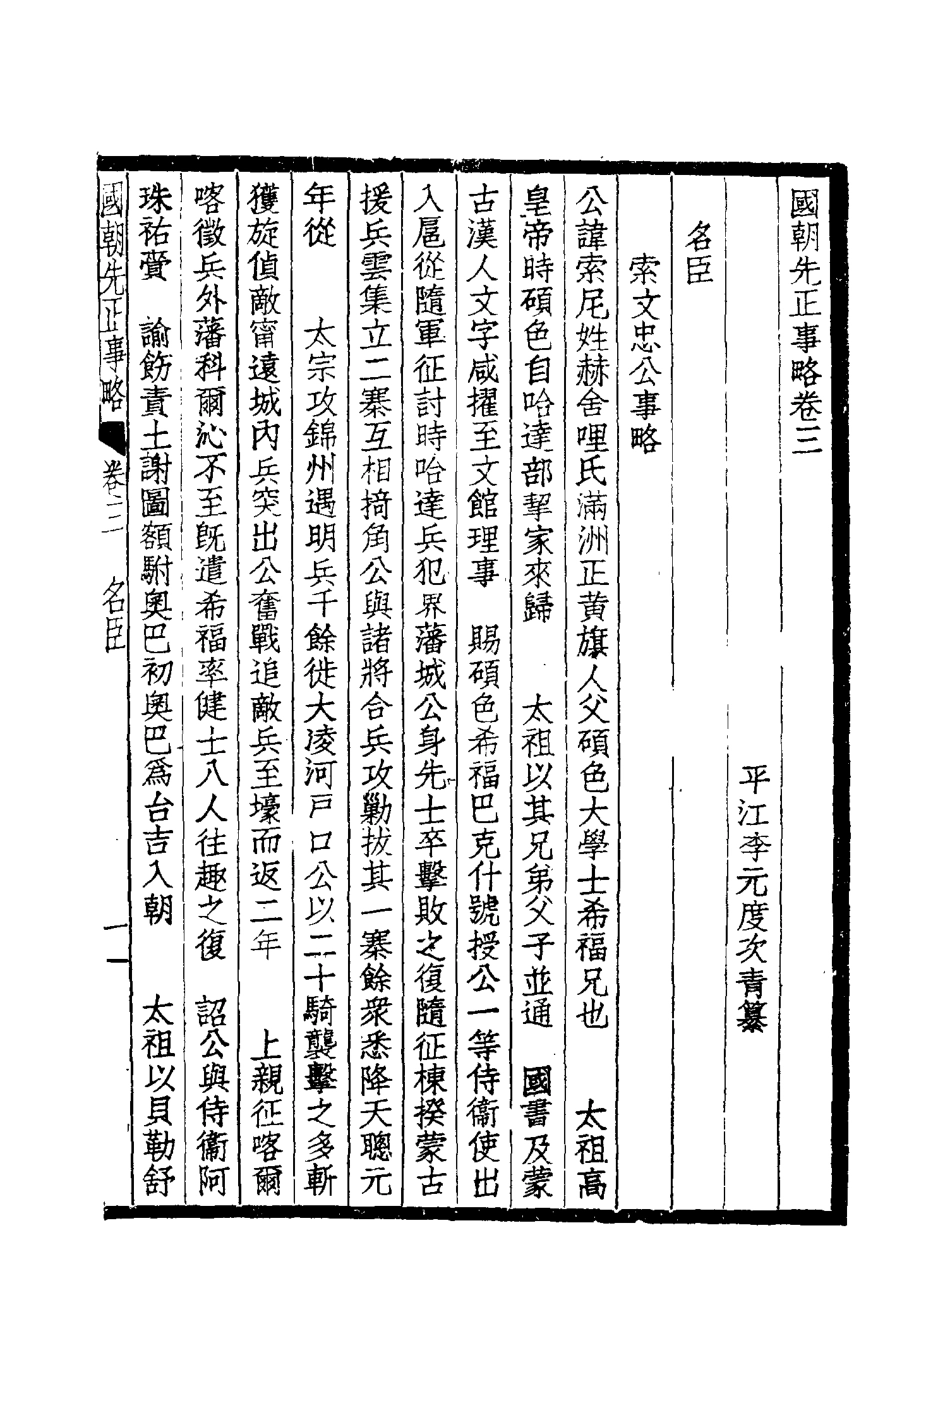 國朝先正事略卷三
平江李元度次青纂
名臣
索文忠公事略
公諱索尼姓赫舍哩氏滿洲正黃旗人父碩色大學士希福兄也　太祖高
皇帝時碩色自哈達部挈家來歸　太祖以其兄弟父子並通　國書及蒙
古漢人文字咸擢至文館理事　賜碩色希福巴克什號授公一等侍衞使出
入扈從隨軍征討時哈達兵犯界藩城公身先士卒擊敗之復隨征棟揆蒙古
援兵雲集立二寨互相掎角公與諸將合兵攻勦拔其一寨餘衆悉降天聰元
年從　太宗攻錦州遇明兵千餘徙大凌河戸口公以二十騎襲擊之多斬
獲旋偵敵甯遠城內兵突出公奮戰追敵兵至壕而返二年　上親征喀爾
喀徵兵外藩科爾沁不至旣遣希福率健士八人往趣之復　詔公與侍衞阿
珠祐齎　諭飭責土謝圖額駙奧巴初奧巴爲台吉入朝　太祖以貝勒舒
國朝先正事略　卷三　名臣　一